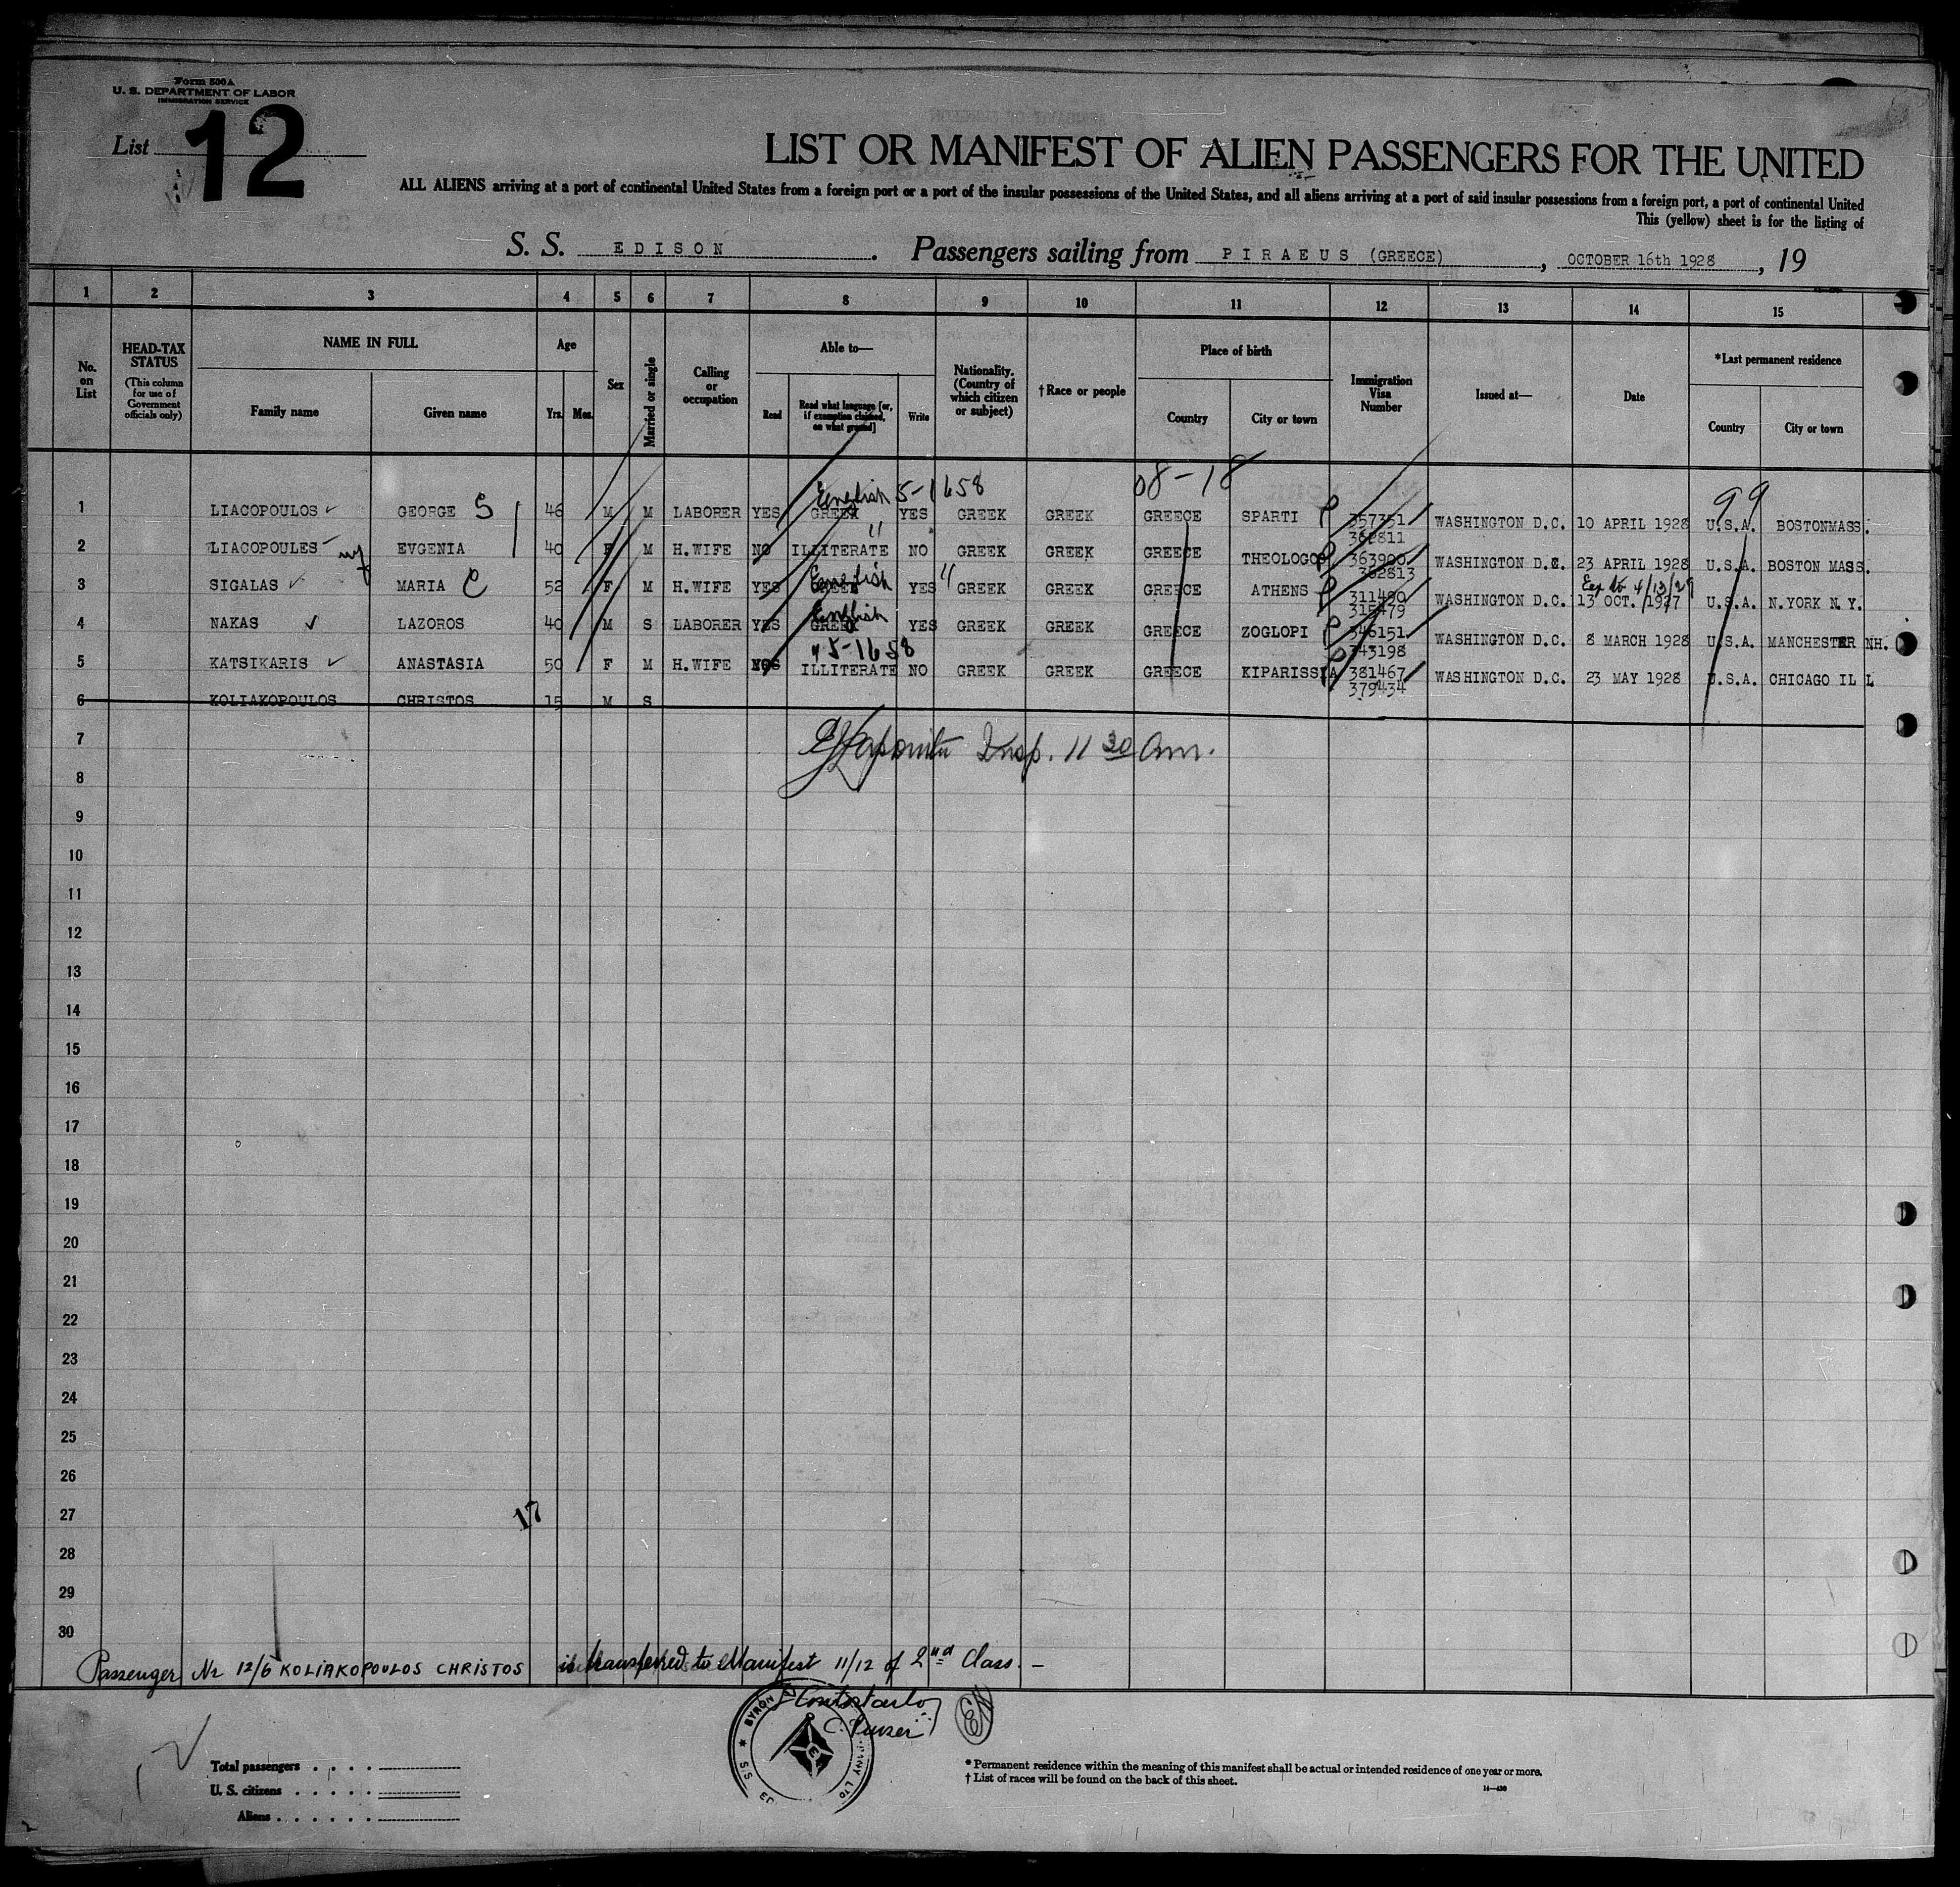 Form 500A
U. S. DEPARTMENT OF LABOR
IMMIGRATION SERVICE
List 12
LIST OR MANIFEST OF ALIEN PASSENGERS FOR THE UNITED
ALL ALIENS arriving at a port of continental United States from a foreign port or a port of the insular possessions of the United States, and all aliens arriving at a port of said insular possessions from a foreign port, a port of continental United
This (yellow) sheet is for the listing of
S. S. EDISON. Passengers sailing from PIRAEUS (GREECE), OCTOBER 16th 1928, 19
1 2 3 4 5 6 7 8 9 10 11 12 13 14 15
No. on List
HEAD-TAX STATUS
(This column for use of Government officials only)
NAME IN FULL
Family name Given name
Age
Yrs. Mos.
Sex
Married or single
Calling or occupation
Able to—
Read
Read what language [or, if exemption claimed, on what ground]
Write
Nationality. (Country of which citizen or subject)
†Race or people
Place of birth
Country City or town
Immigration Visa Number
Issued at—
Date
*Last permanent residence
Country City or town
English 5-1658 08-18 99
1 LIACOPOULOS GEORGE S 46 M M LABORER YES GREEK YES GREEK GREEK GREECE SPARTI 357351 WASHINGTON D.C. 10 APRIL 1928 U.S.A. BOSTONMASS.
362811
2 LIACOPOULES EVGENIA 40 F M H.WIFE NO ILLITERATE NO GREEK GREEK GREECE THEOLOGOS 363900 WASHINGTON D.C. 23 APRIL 1928 U.S.A. BOSTON MASS.
English 362813 4/13/29
3 SIGALAS MARIA C 52 F M H.WIFE YES GREEK YES GREEK GREEK GREECE ATHENS 311490 WASHINGTON D.C. 13 OCT. 1927 U.S.A. N.YORK N.Y.
English 315479
4 NAKAS LAZOROS 40 M S LABORER YES GREEK YES GREEK GREEK GREECE ZOGLOPI 346151 WASHINGTON D.C. 8 MARCH 1928 U.S.A. MANCHESTER NH.
" 5-1658 343198
5 KATSIKARIS ANASTASIA 50 F M H.WIFE ILLITERATE NO GREEK GREEK GREECE KIPARISSIA 381467 WASHINGTON D.C. 23 MAY 1928 U.S.A. CHICAGO ILL
379434
6 KOLIAKOPOULOS CHRISTOS 15 M S
7
Insp. 11 30 Am.
8
9
10
11
12
13
14
15
16
17
18
19
20
21
22
23
24
25
26
27
17
28
29
30
Passenger Nr 12/6 KOLIAKOPOULOS CHRISTOS is transferred to Manifest 11/12 of 2nd Class. –
BYRON
C. Purser
S.S. ED
Total passengers
U. S. citizens
Aliens
* Permanent residence within the meaning of this manifest shall be actual or intended residence of one year or more.
† List of races will be found on the back of this sheet.
14—430